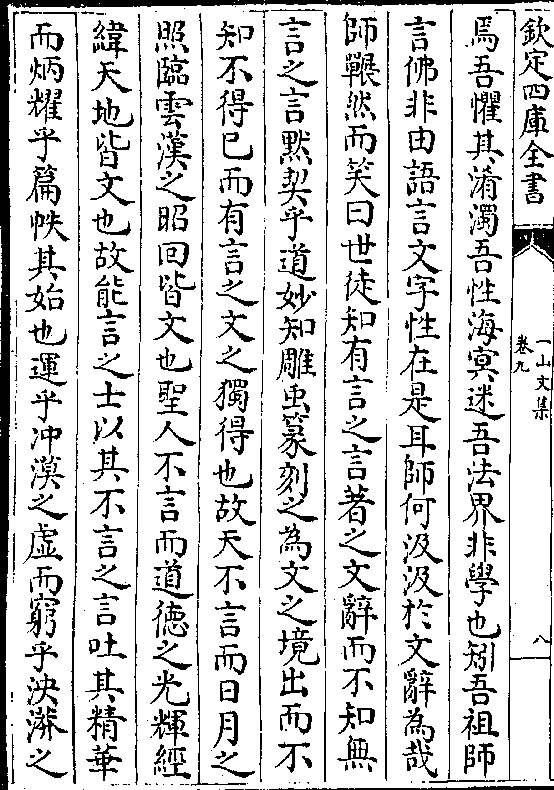 欽定四庫全書
一山文集
卷九
八
焉吾懼其淆濁吾性海㝠迷吾法界非學也矧吾祖師
言佛非由語言文字性在是耳師何汲汲於文辭為哉
師囅然而笑曰世徒知有言之言著之文辭而不知無
言之言黙契乎道妙知雕虫篆刻之為文之境出而不
知不得已而有言之文之獨得也故天不言而日月之
照臨雲漢之昭回皆文也聖人不言而道徳之光輝經
緯天地皆文也故能言之士以其不言之言吐其精華
而炳耀乎篇帙其始也運乎冲漠之虛而窮乎泱漭之